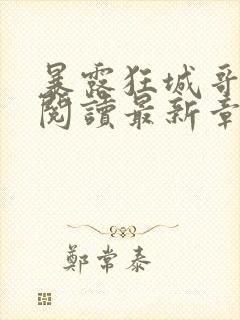 暴露狂城哥
閱讀最新章
鄭常泰